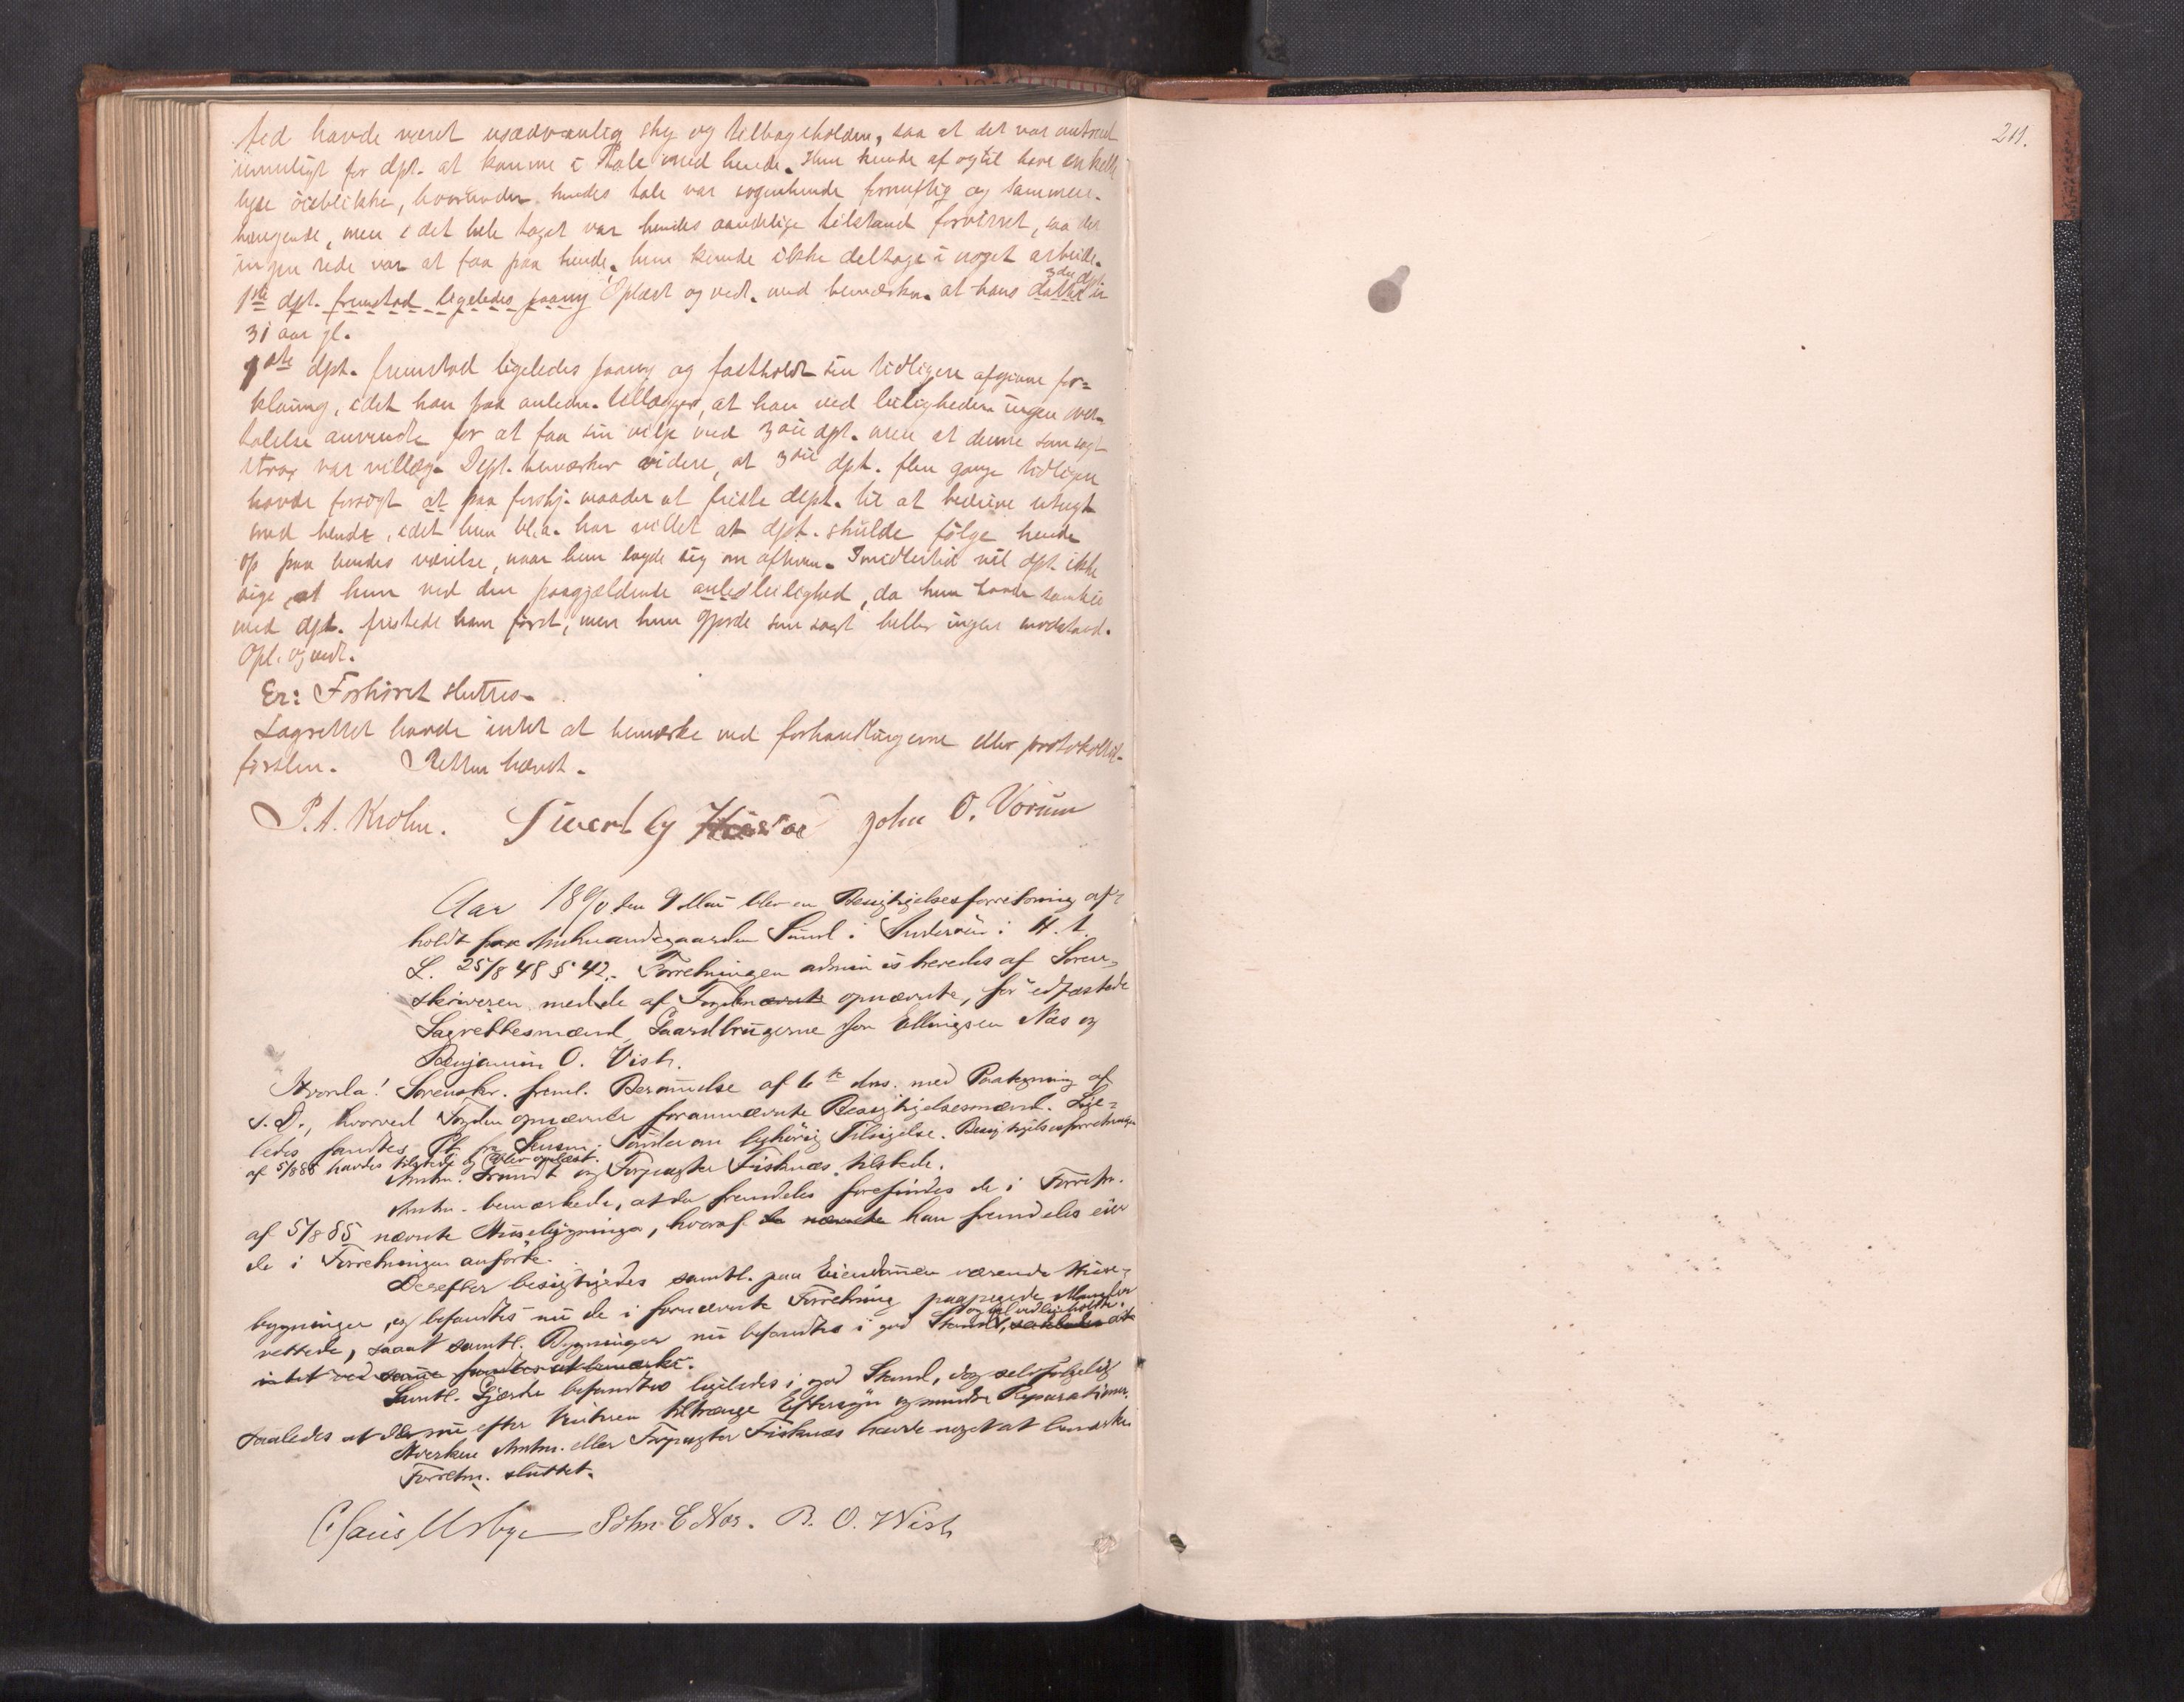 sted havde været usædvanlig sky og tilbageholden, saa at det var omtrent
umuligt for dpt. at komme i tale med hende. Hun kunde af og til have enkelte
lyse öieblikke, hvorunder hendes tale var nogenlunde fornuftig og sammen-
hængende, men i det hele taget var hendes aandelige tilstand forvirret, saa der
ingen rede var at faa paa hende, hun kunde ikke deltage i noget arbeide.
1ste dpt. fremstod ligeledes paany Oplæst og vedt. med bemærkn. at hans datter 3die dpt. er
31 aar gl.
1ste dpt. fremstod ligeledes paany og fastholdt sin tidligere afgivne for=
klaring, idet han paa anledn. tillægger, at han ved leiligheden ingen over-
talelse anvendte for at faa sin vilje med 3die dpt. men at denne som sagt
strax var villig. Dept. bemærker videre, at 3die dpt. flere gange tidligere
havde forsögt at paa forskj. maader at friste dept. til at bedrive utugt
med hende, idet hun bl.a. har villet at dpt. skulde fölge hende
op paa hendes værelse, naar hun lagde sig om aftenen. Imidlertid vil dpt. ikke
sige, at hun ved den paagjældende anled leilighed, da hun havde samleie
med dpt. fristede ham först, men hun gjorde som sagt heller ingen modstand.
Opl. og vedt.
Er: Forhöret sluttes.
Lagrettet havde intet at bemærke ved forhandlingerne eller protokollat-
förslen. Retten hævet.
P. A. Krohn. Sivert Ly John O. Vorum
Aar 1890 den 9 Mai blev en Besigtigelsesforretning af=
holdt paa Amtmandsgaarden Sund i Inderöen i H. t.
L. 25/8 48 § 42. Forretningen administreredes af Soren-
skriveren med de af Fogden nævnte opnævnte, før edfæstede
Lagrettesmænd, Gaardbrugerne Jon Ellingsen Næs og
Benjamin O. Vist.
Hvorda! Sorenskr. freml. Berammelse af 6te dns. med Paategning af
s. D., hvorved Fogden opnævnte forannævnte Besigtigelsesmænd. Lige=
ledes fandtes Pt. fra Lensm. Sund om lyhörig Tilsigelse. Besigtigelsesforretningen
af 5/8 85 havdes tilstede og blev oplæst.
Amtm. Grundt og Forpagter Fisknæs tilstede.
Amtm. bemærkede, at der fremdeles forefindes de i Forretn.
af 5/8 85 nævnte Husebygninger, hvoraf de nævnte han fremdeles eier
de i Forretningen anförte.
Derefter besigtigedes samtl. paa Eiendommen værende Huse-
bygninger, og befandtes nu de i fornævnte Forretning paapegede Mangler
rettede, saaat samtl. Bygninger nu befandtes i god Stand og vel vedligeholdte, saaledes at
intet ved samme fandtes at bemærke.
Samtl. Gjærder befandtes ligeledes i god Stand, dog selvfölgelig
saaledes at de nu efter Vinteren tiltrænge Eftersyn og mindre Reparationer.
Hverken Amtm. eller Forpagter Fisknæs havde noget at bemærke.
Forretn. sluttet.
John E Næs. B. O. Wist
211.